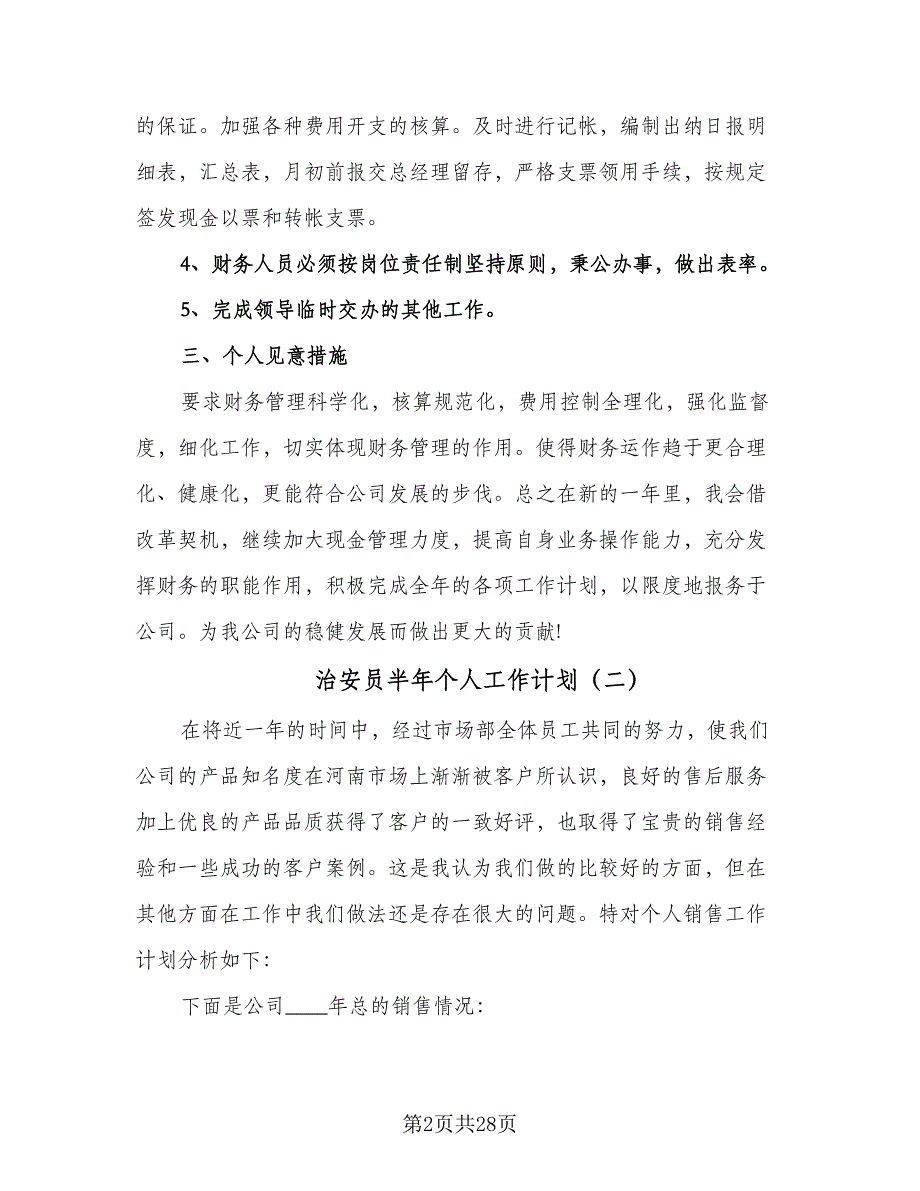 的保证。加强各种费用开支的核算。及时进行记帐，编制出纳日报明
细表，汇总表，月初前报交总经理留存，严格支票领用手续，按规定
签发现金以票和转帐支票。
4、财务人员必须按岗位责任制坚持原则，秉公办事，做出表率。
5、完成领导临时交办的其他工作。
三、个人见意措施
要求财务管理科学化，核算规范化，费用控制全理化，强化监督
度，细化工作，切实体现财务管理的作用。使得财务运作趋于更合理
化、健康化，更能符合公司发展的步伐。总之在新的一年里，我会借
改革契机，继续加大现金管理力度，提高自身业务操作能力，充分发
挥财务的职能作用，积极完成全年的各项工作计划，以限度地报务于
公司。为我公司的稳健发展而做出更大的贡献!
治安员半年个人工作计划（二）
在将近一年的时间中，经过市场部全体员工共同的努力，使我们
公司的产品知名度在河南市场上渐渐被客户所认识，良好的售后服务
加上优良的产品品质获得了客户的一致好评，也取得了宝贵的销售经
验和一些成功的客户案例。这是我认为我们做的比较好的方面，但在
其他方面在工作中我们做法还是存在很大的问题。特对个人销售工作
计划分析如下：
下面是公司____年总的销售情况：
第2页共28页